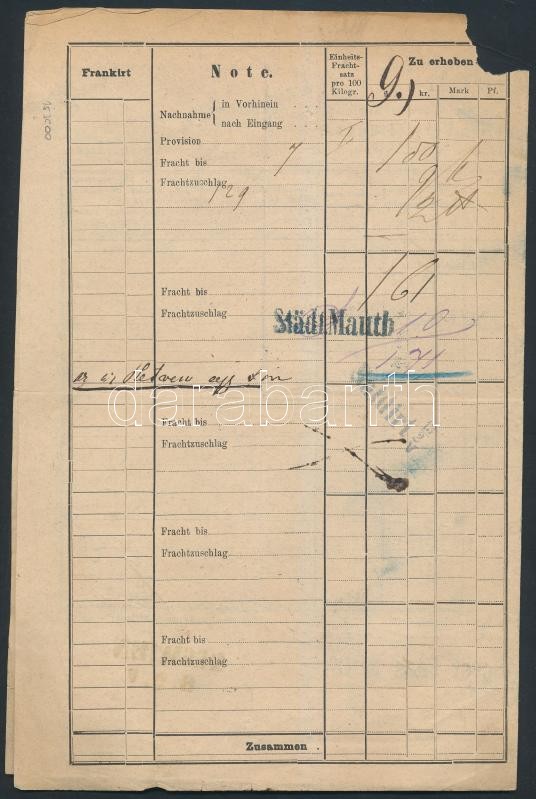 Frankirt
Note.
Einheits-
Fracht-
satz
pro 100
Kilogr.
Zu erheben
kr.
Mark
Pf.
Nachnahme
in Vorhinein
nach Eingang
Provision
7
Fracht bis
Frachtzuschlag
129
161
Fracht bis
Frachtzuschlag
Städt. Mauth
10
171
darabanth
Fracht bis
Frachtzuschlag
Fracht bis
Frachtzuschlag
Fracht bis
Frachtzuschlag
Zusammen